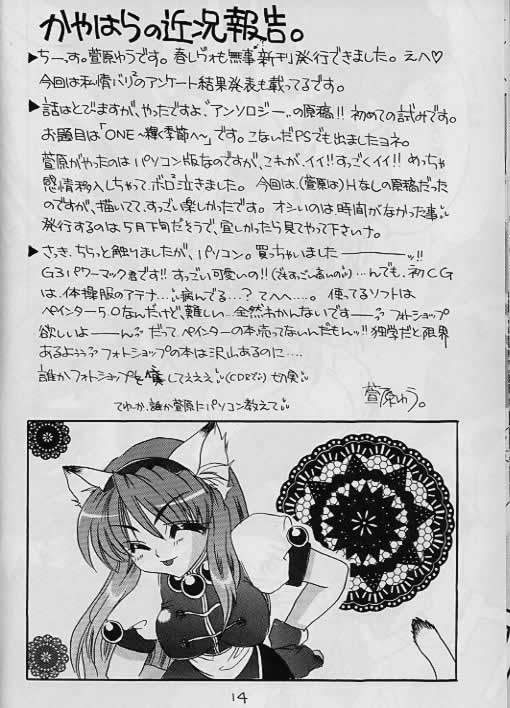 かやはらの近況報告。
▶ちーっす。萱原ゆうです。春しらおも無事新刊発行できました。えへ♡
今回は私情バリ²のアンケート結果発表も載ってるです。
▶話はとびますが、やったですよ、"アンソロジー"の原稿!! 初めての試みです。
お題目は「ONE～輝く季節へ～」です。こないだPSでも出ましたヨネ。
萱原がやったのはパソコン版なのですが、これが、イイ!! すっごくイイ!! めっちゃ
感情移入しちゃって、ボロ泣きました。今回は、(萱原は)Hなしの原稿だった
のですが、描いてて、すっごい楽しかったです。オシいのは時間がなかった事。
発行するのは5月下旬だそうで、宜しかったら見てやって下さいナ。
▶さっき、ちらっと触りましたが、パソコン。買っちゃいました―――ッ!!
G3パワーマック君です!! すっごい可愛いの!! (でもすっごい高いの)…んでも、初CG
は、体操服のアテナ…病んでる…?てへへ…。使ってるソフトは
ペインター5.0なんだけど、難しい…全然わかんないですーっ フォトショップ
欲しいよーーんっ だって、ペインターの本、売ってないんだもんッ!! 独学だと限界
あるようっっ フォトショップの本は沢山あるのに…。
誰かフォトショップを して ええ (CDRでい) 切実
てゆーか、誰か萱原にパソコン教えて
萱原ゆう。
14